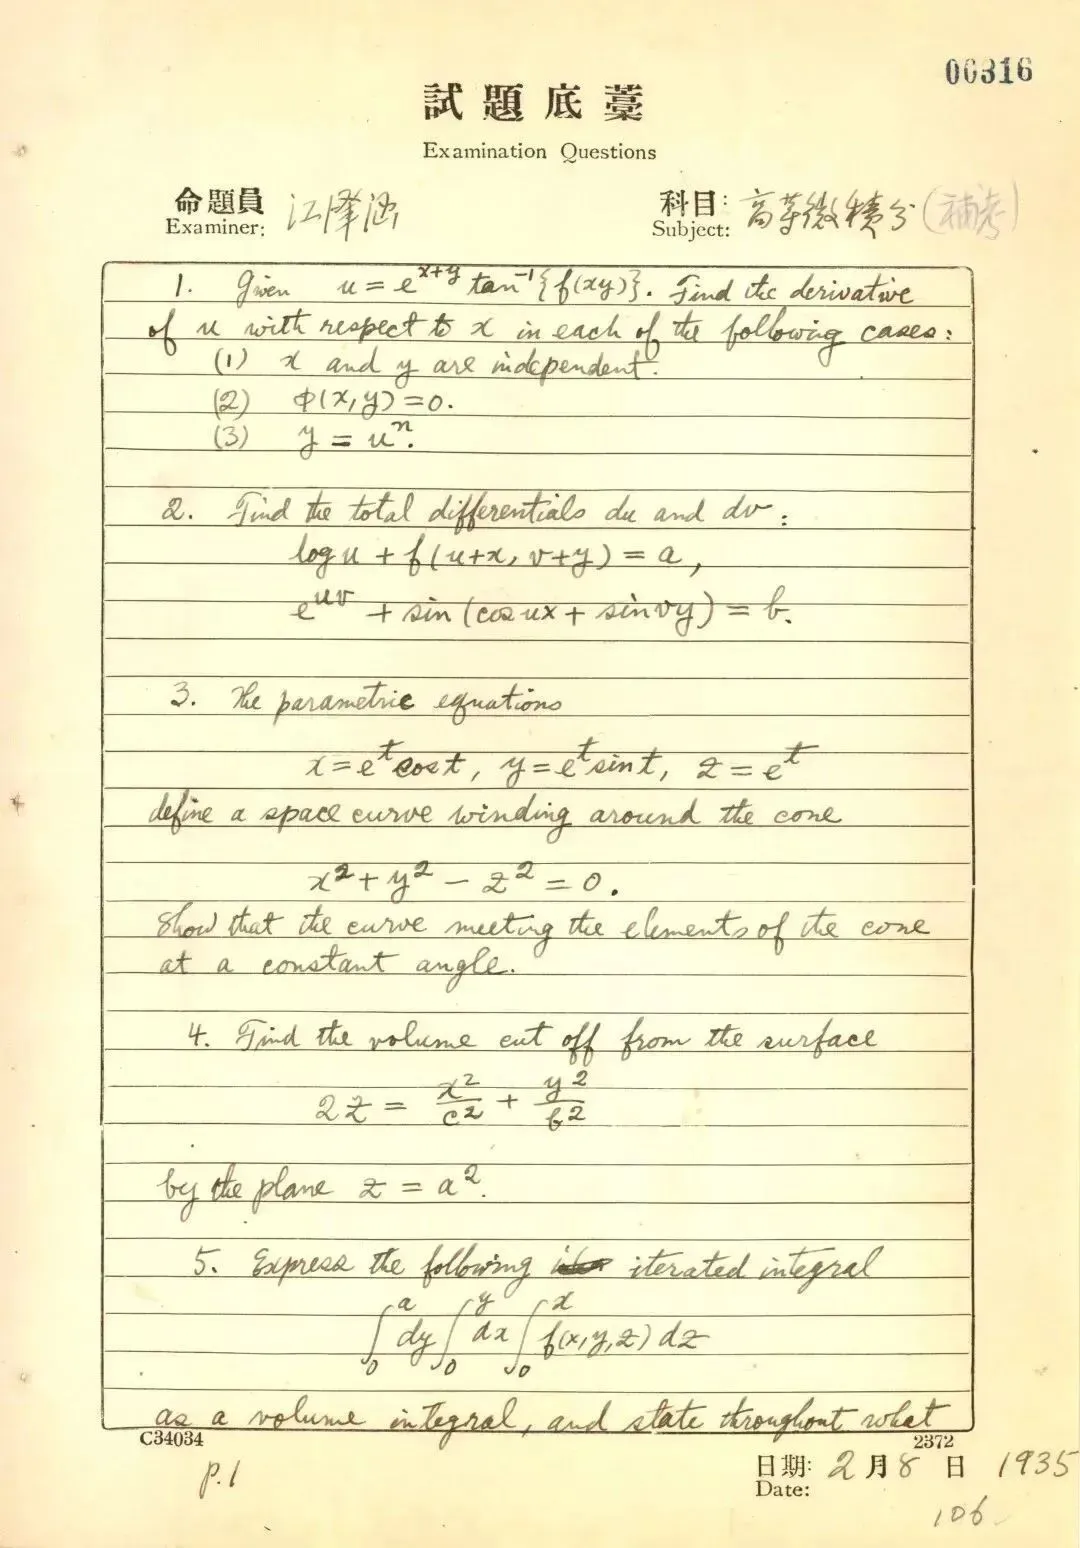 00316
試題底藁
Examination Questions
命題員 江澤涵 科目: 高等微積分(補考)
Examiner: Subject:
1. Given u = e^{x+y} tan^{-1}{f(xy)}. Find the derivative
of u with respect to x in each of the following cases:
(1) x and y are independent.
(2) Φ(x,y)=0.
(3) y = u^n.
2. Find the total differentials du and dv:
log u + f(u+x, v+y) = a,
e^{uv} + sin (cos ux + sin vy) = b.
3. The parametric equations
x=e^t cos t, y=e^t sin t, z=e^t
define a space curve winding around the cone
x^2 + y^2 - z^2 = 0.
Show that the curve meeting the elements of the cone
at a constant angle.
4. Find the volume cut off from the surface
2z = x^2/c^2 + y^2/b^2
by the plane z = a^2.
5. Express the following iterated integral
∫_0^a dy ∫_0^y dx ∫_0^x f(x,y,z) dz
as a volume integral, and state throughout what
C34034 2372
p.1 日期: 2月8日 1935
Date:
106